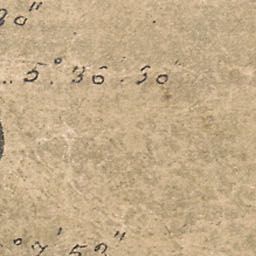 30"
5° 36 . 30
° 7' 52"